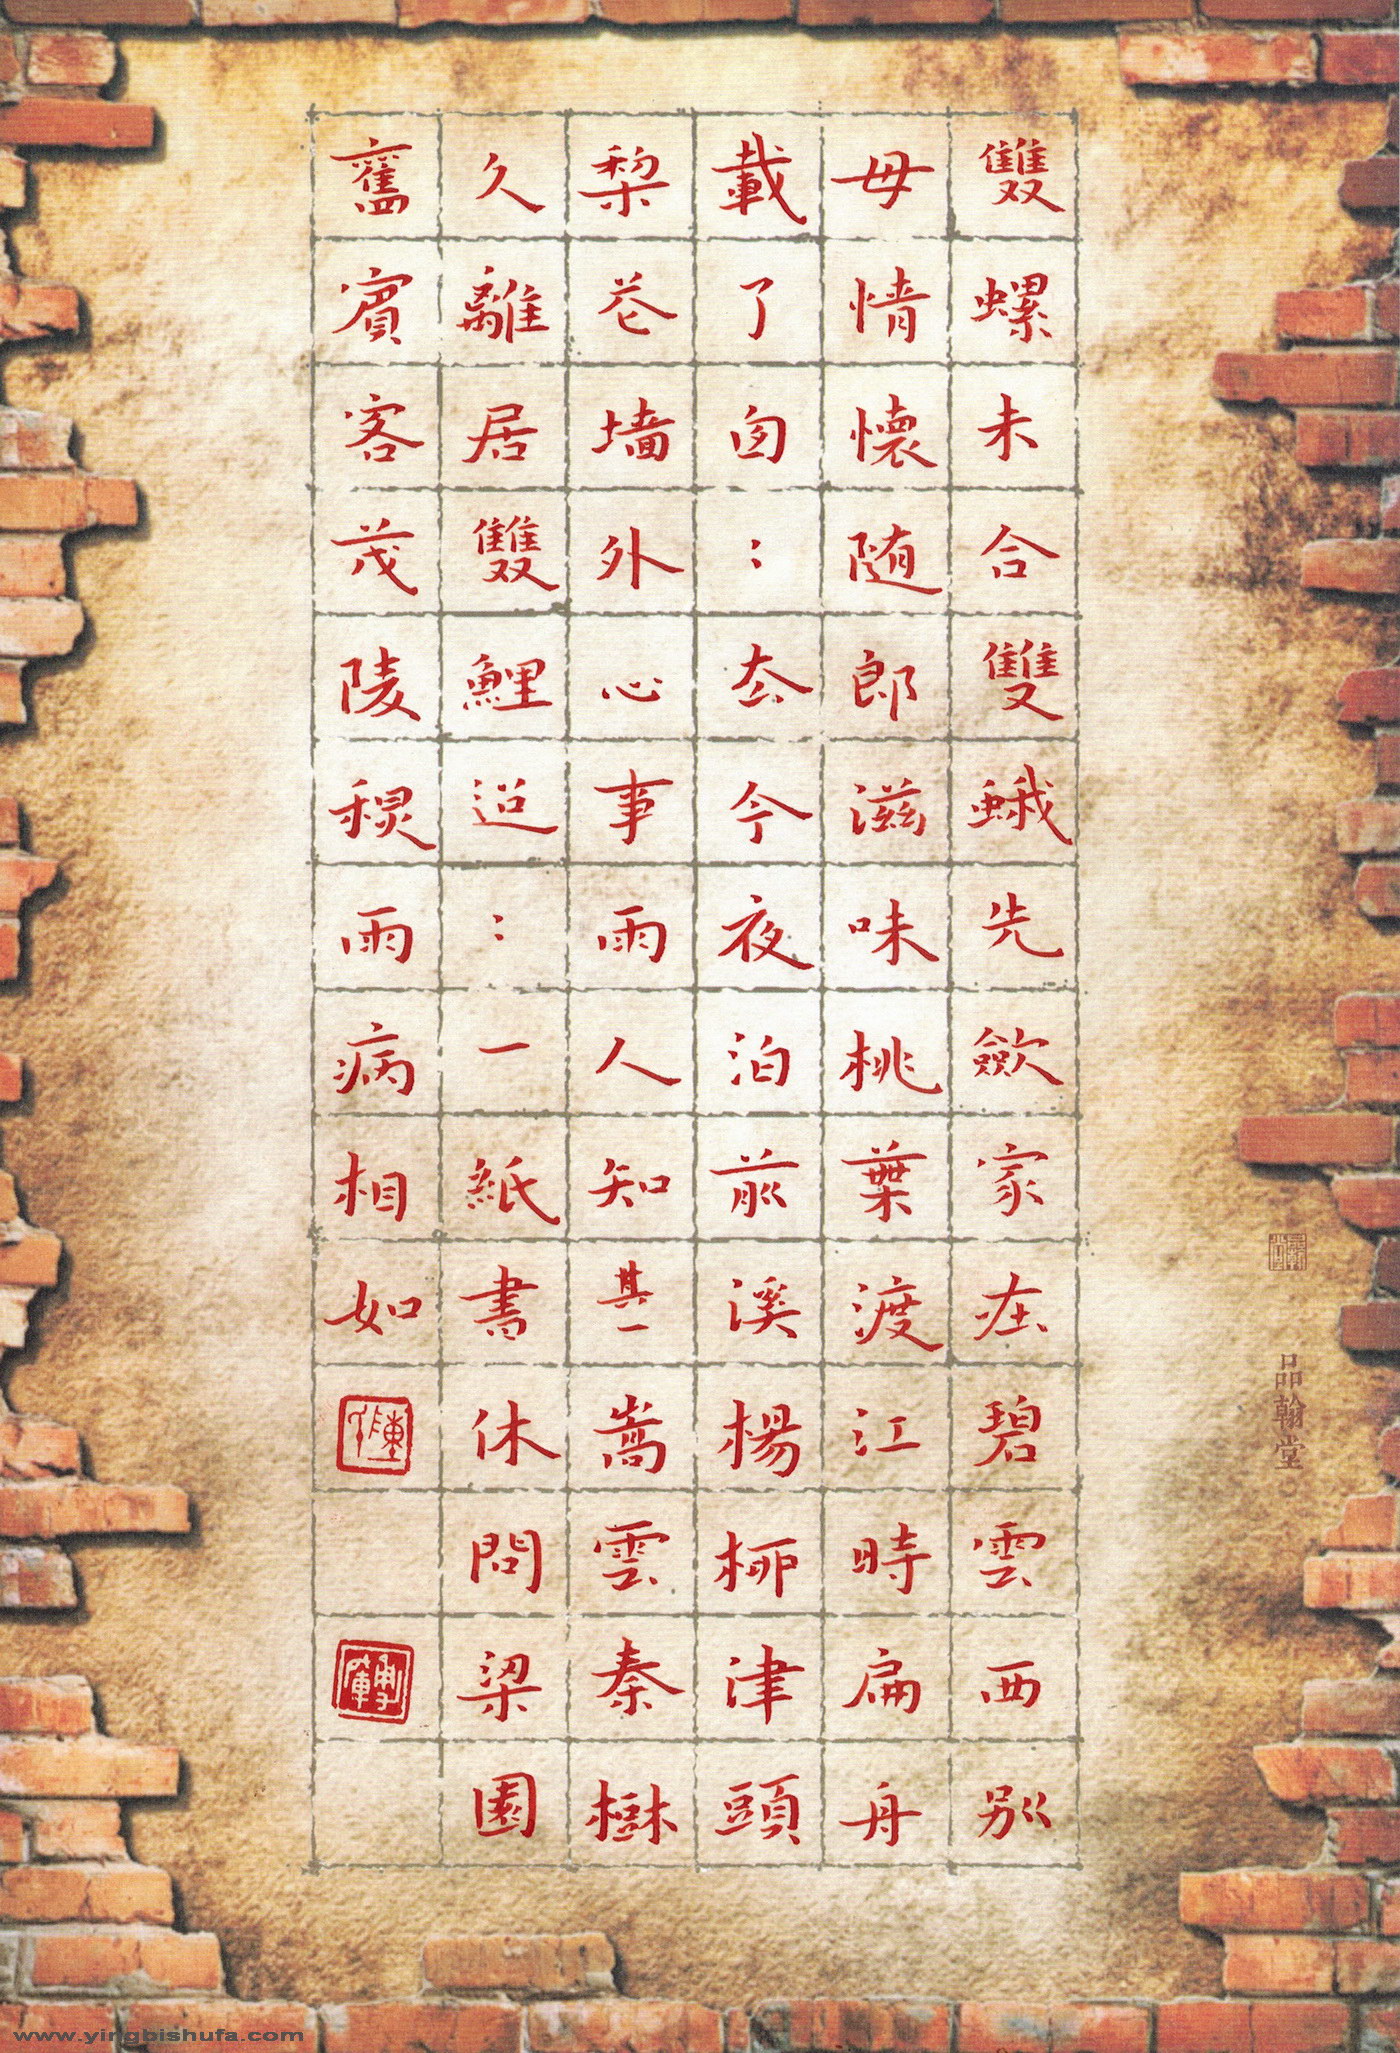 雙螺未合雙蛾先歛家在碧雲西別
母情懷随郎滋味桃葉渡江時扁舟
載了匆〻去今夜泊前溪楊柳津頭
梨花墻外心事兩人知其一嵩雲秦樹
久離居雙鯉迢〻一紙書休問梁園
舊賓客茂陵秋雨病相如
品翰堂
www.yingbishufa.com